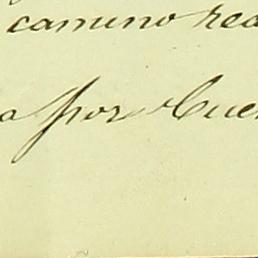 camino rea
a por Cuer